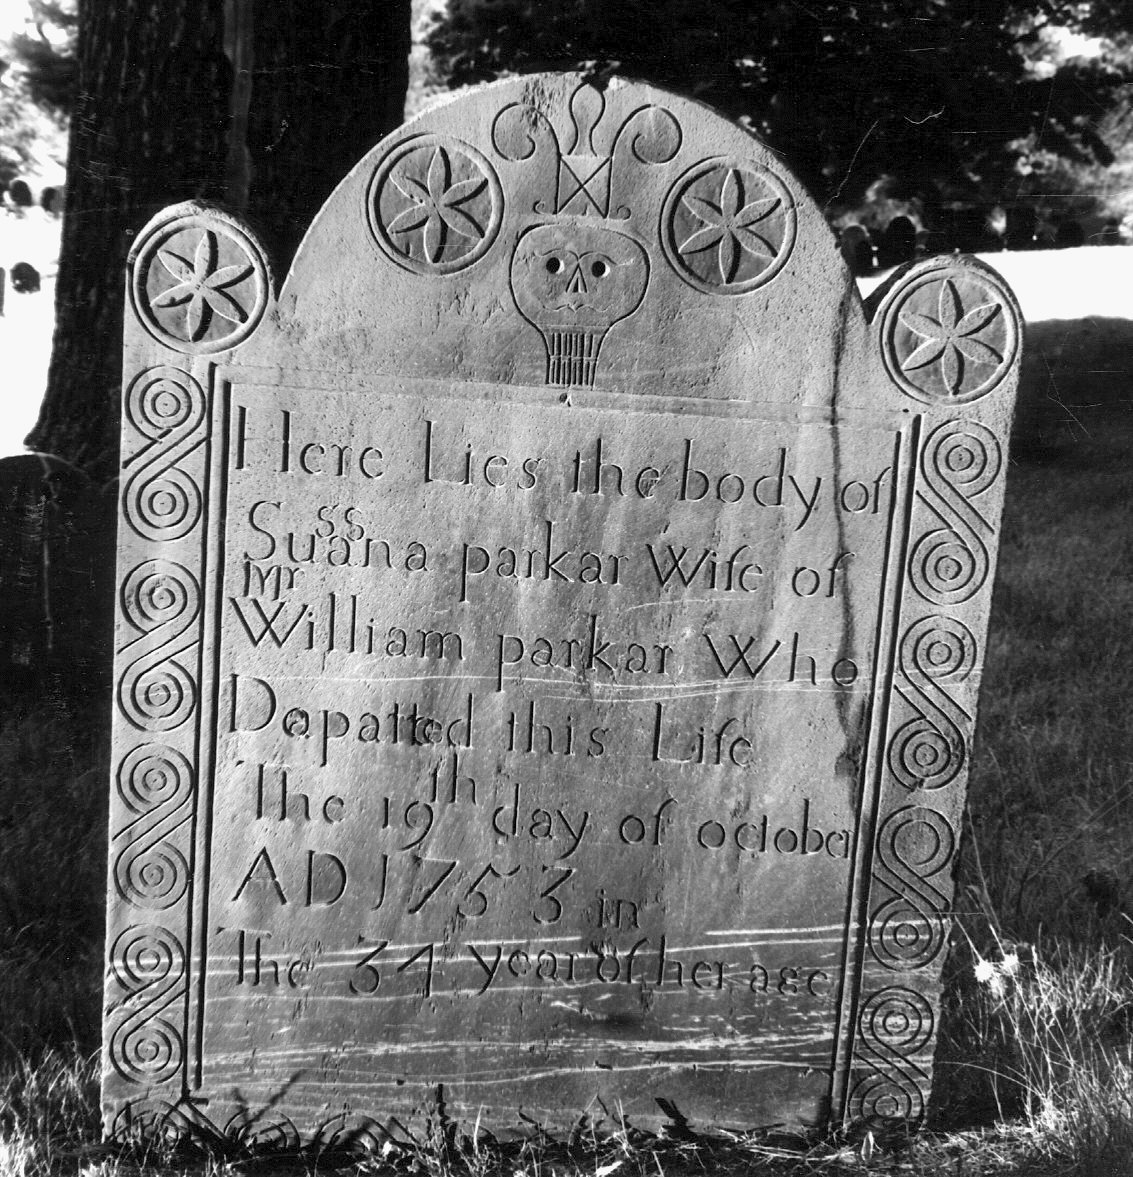 Here Lies the body of
Sussana parkar Wife of
Mr William parkar Who
Dapatted this Life
The 19th day of october
AD 1753 in
the 34 year of her age